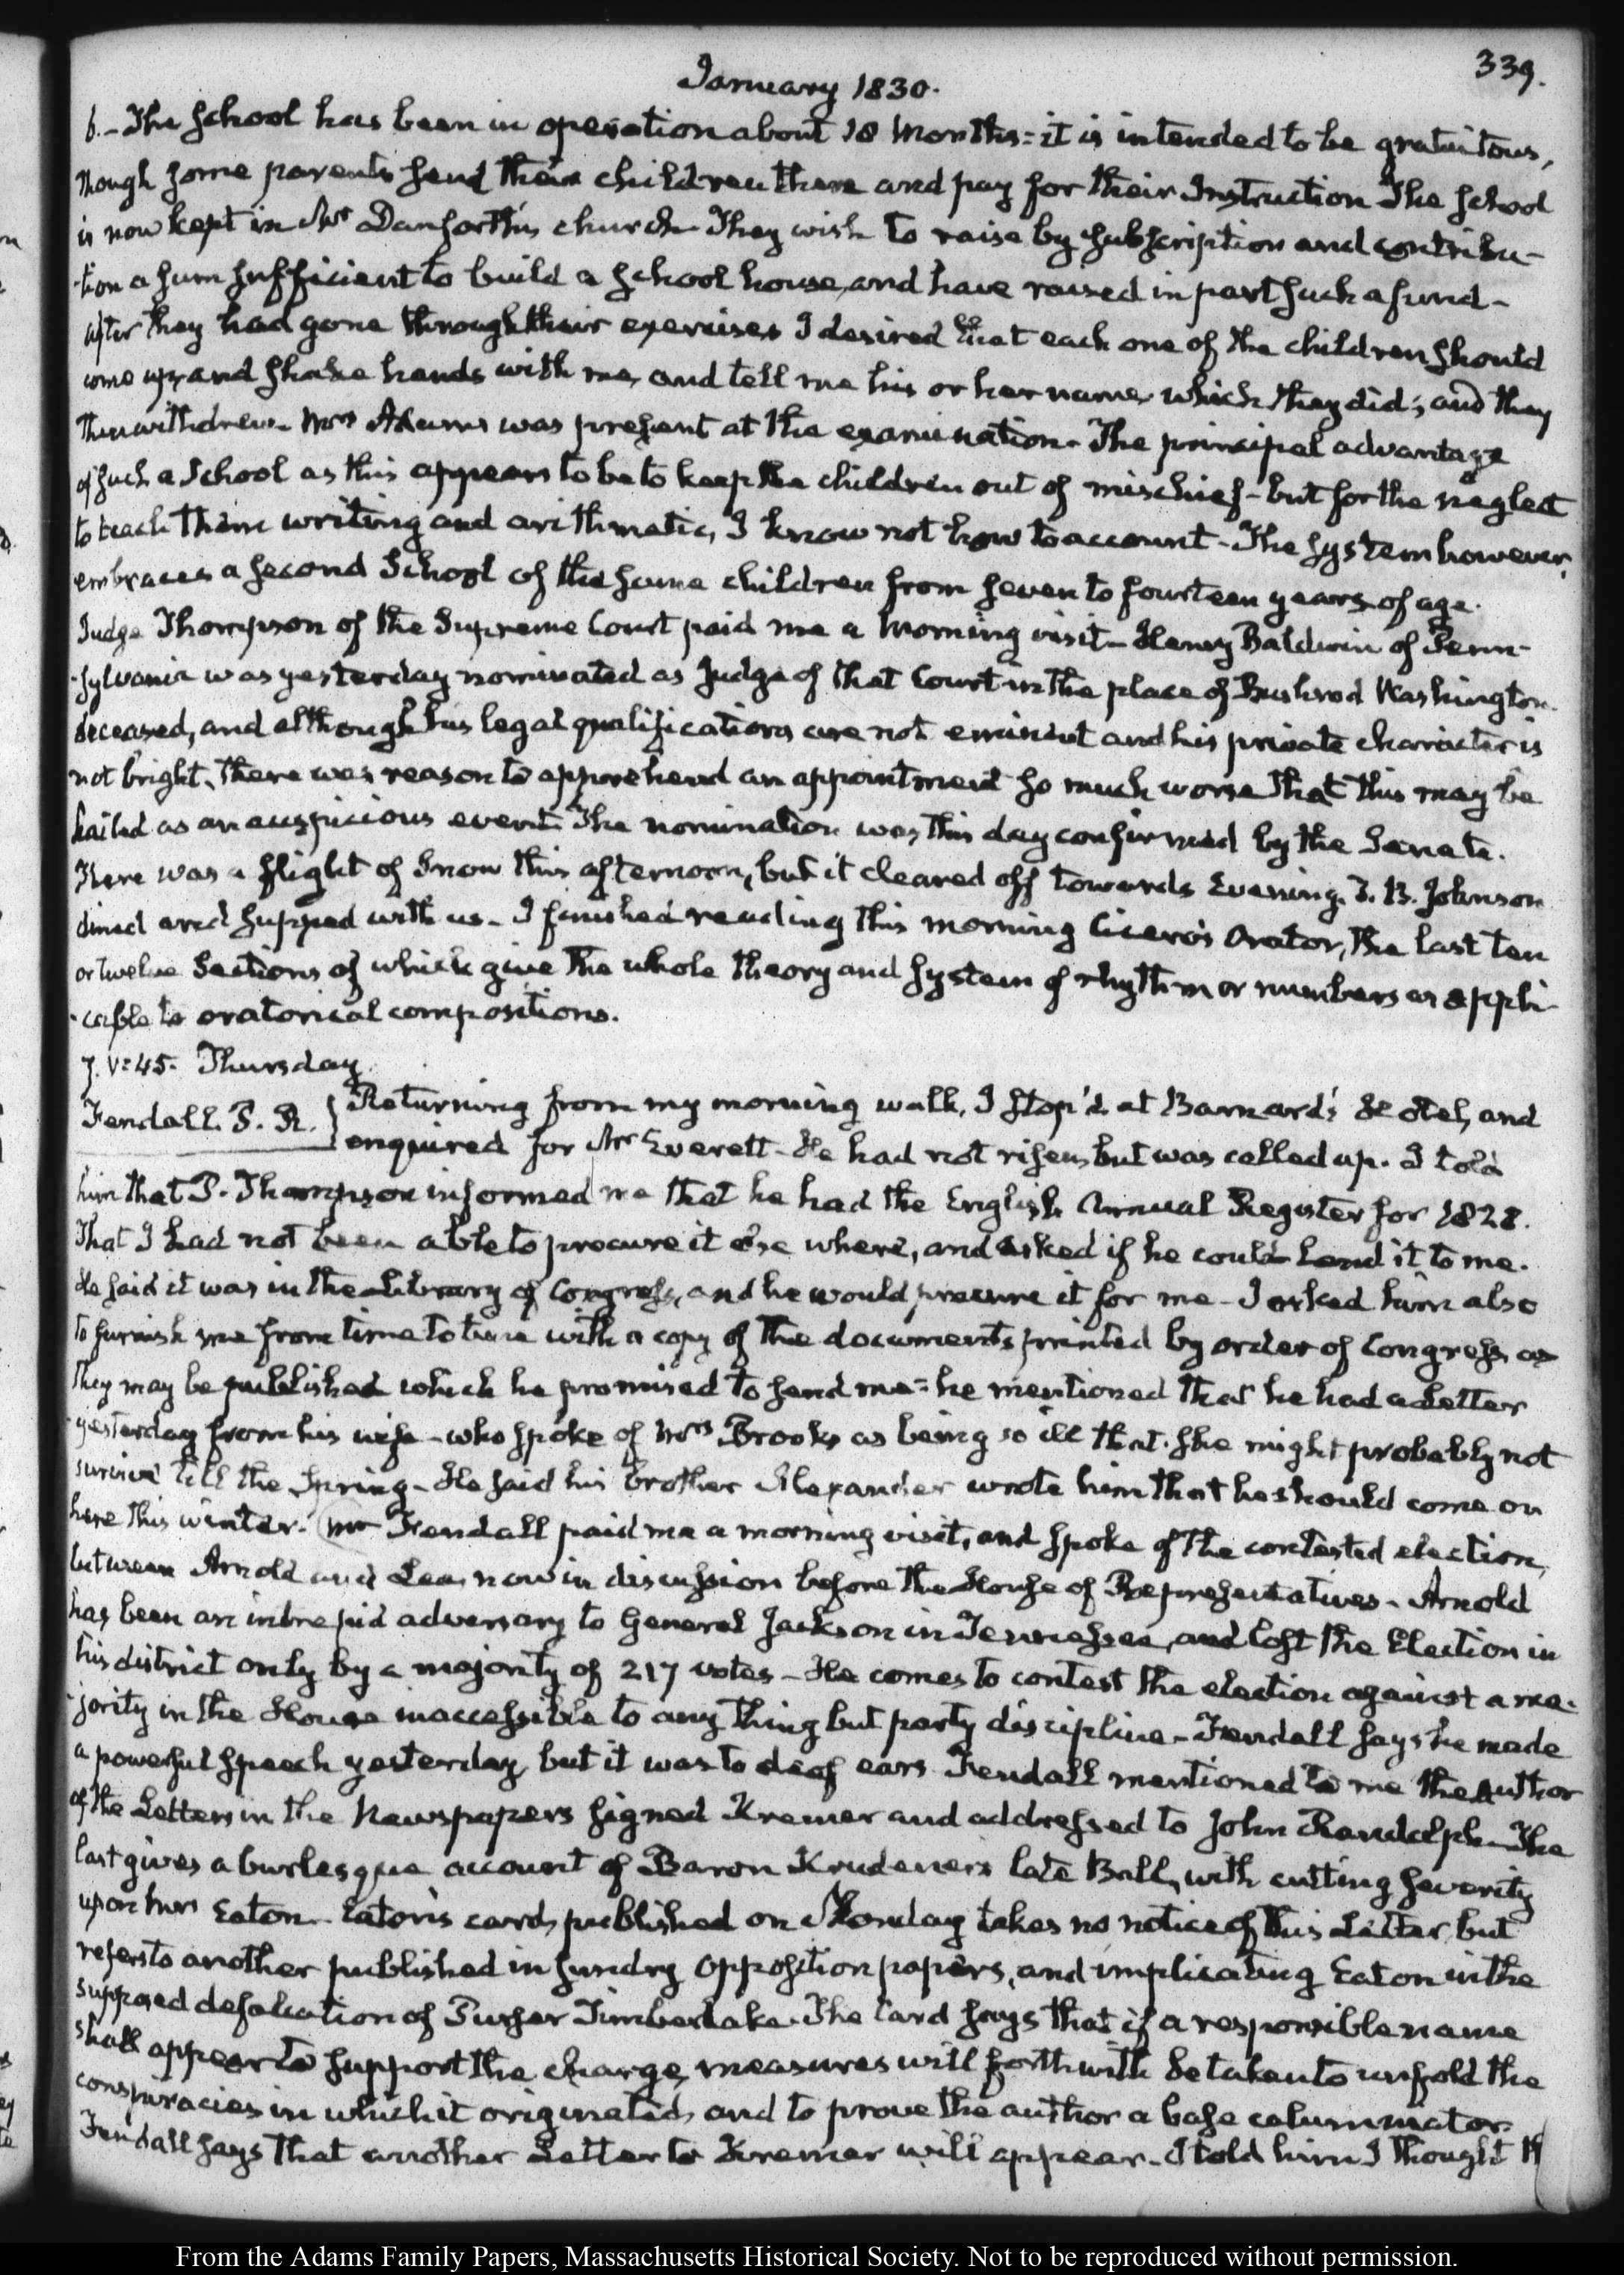 339.
January 1830.
6.- The School has been in operation about 18 Months: it is intended to be gratuitous,
though some parents send their children there and pay for their Instruction The School
is now kept in Mr Danforth's church They wish to raise by subscription and contribu-
-tion a sum sufficient to build a School house, and have raised in part such a fund-
after they had gone through their exercises I desired that each one of the children should
come up, and shake hands with me, and tell me his or her name, which they did; and they
then withdrew. Mrs Adams was present at the examination. The principal advantage
of such a School as this appears to be to keep the children out of mischief- but for the neglect
to teach them writing and arithmetic, I know not how to account- The System however,
embraces a second School of the same children from seven to fourteen years of age.
Judge Thompson of the Supreme Court paid me a morning visit- Henry Baldwin of Penn-
-sylvania was yesterday nominated as Judge of that Court in the place of Bushrod Washington
deceased, and although his legal qualifications are not eminent and his private character is
not bright, there was reason to apprehend an appointment so much worse that this may be
hailed as an auspicious event. The nomination was this day confirmed by the Senate.
There was a flight of Snow this afternoon, but it cleared off towards Evening. T. B. Johnson
dined and supped with us- I finished reading this morning Cicero's Orator, the last ten
or twelve Sections of which give the whole theory and system of rhythm or numbers as appli-
-cable to oratorical compositions.
7. V:45. Thursday.
Fendall. P. R.
Returning from my morning walk, I stop'd at Barnard's Hotel, and
enquired for Mr Everett- He had not risen, but was called up. I told
him that P. Thompson informed me that he had the English Annual Register for 1828.
That I had not been able to procure it else where, and asked if he could lend it to me.
He said it was in the Library of Congress, and he would procure it for me- I asked him also
to furnish me from time to time with a copy of the documents printed by order of Congress as
they may be published which he promised to send me: he mentioned that he had a Letter
yesterday from his wife- who spoke of Mrs Brooks as being so ill that she might probably not
survive till the Spring- He said his brother Alexander wrote him that he should come on
here this winter. Mr Fendall paid me a morning visit, and spoke of the contested election,
between Arnold and Lea, now in discussion before the House of Representatives- Arnold
has been an intrepid adversary to General Jackson in Tennessee, and lost the Election in
his district only by a majority of 217 votes- He comes to contest the election against a ma-
-jority in the House inaccessible to any thing but party discipline- Fendall says he made
a powerful speech yesterday, but it was to deaf ears Fendall mentioned to me the author
of the Letters in the Newspapers signed Kremer and addressed to John Randolph- The
last gives a burlesque account of Baron Krudener's late Ball, with cutting severity
upon Mrs Eaton- Eaton's card, published on Monday takes no notice of this Letter, but
refers to another published in sundry opposition papers, and implicating Eaton in the
supposed defalcation of Purser Timberlake. The Card says that if a responsible name
shall appear to support the charge, measures will forthwith be taken to unfold the
conspiracies in which it originated, and to prove the author a base calumniator.
Fendall says that another Letter to Kremer will appear. I told him I thought
From the Adams Family Papers, Massachusetts Historical Society. Not to be reproduced without permission.